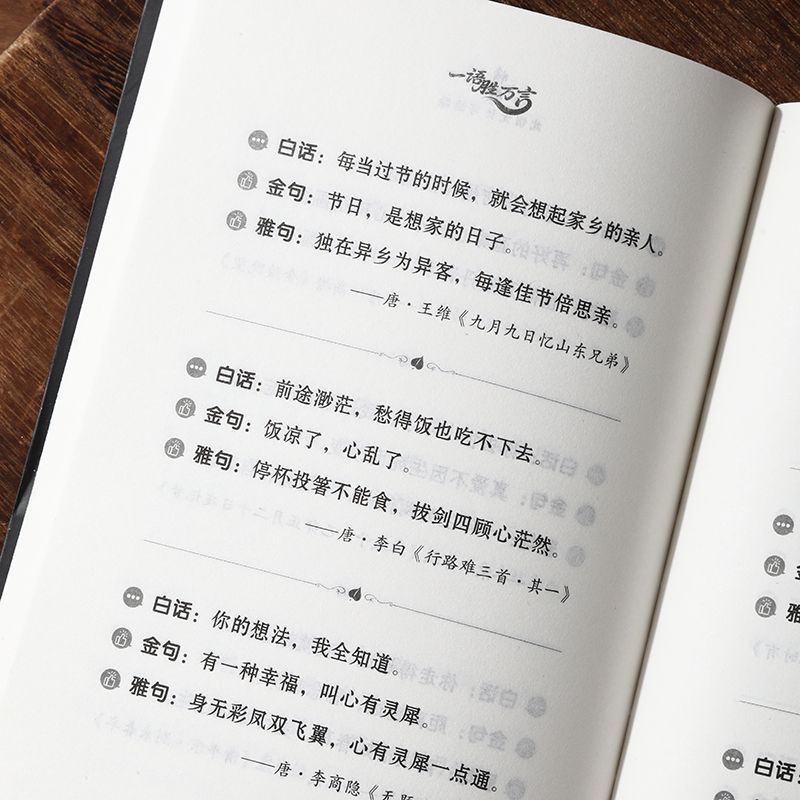 一语胜万言
白话：每当过节的时候，就会想起家乡的亲人。
金句：节日，是想家的日子。
雅句：独在异乡为异客，每逢佳节倍思亲。
——唐·王维《九月九日忆山东兄弟》
白话：前途渺茫，愁得饭也吃不下去。
金句：饭凉了，心乱了。
雅句：停杯投箸不能食，拔剑四顾心茫然。
——唐·李白《行路难三首·其一》
白话：你的想法，我全知道。
金句：有一种幸福，叫心有灵犀。
雅句：身无彩凤双飞翼，心有灵犀一点通。
——唐·李商隐《无题
白
金
雅
白话：